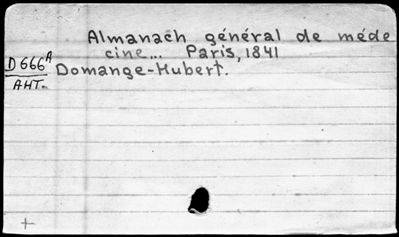 Almanach général de méde
cine... Paris, 1841
D666A Domange-Hubert.
AHT.
+